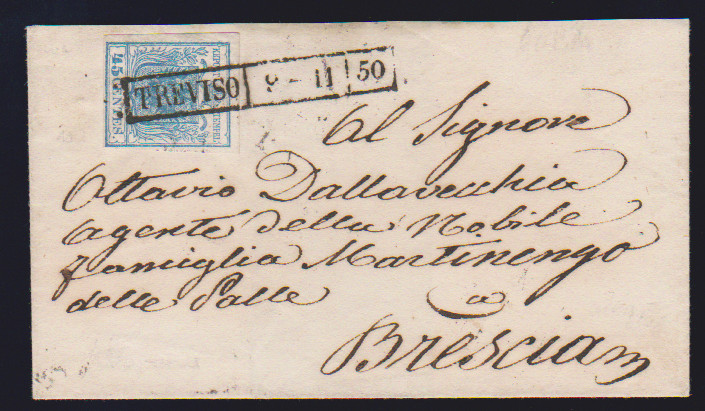 45 CENTES.
TREVISO 9 - 11 50
Al Signore
Ottavio Dallavecchia
agente della Nobile
famiglia Martinengo
delle Palle
a
Brescia